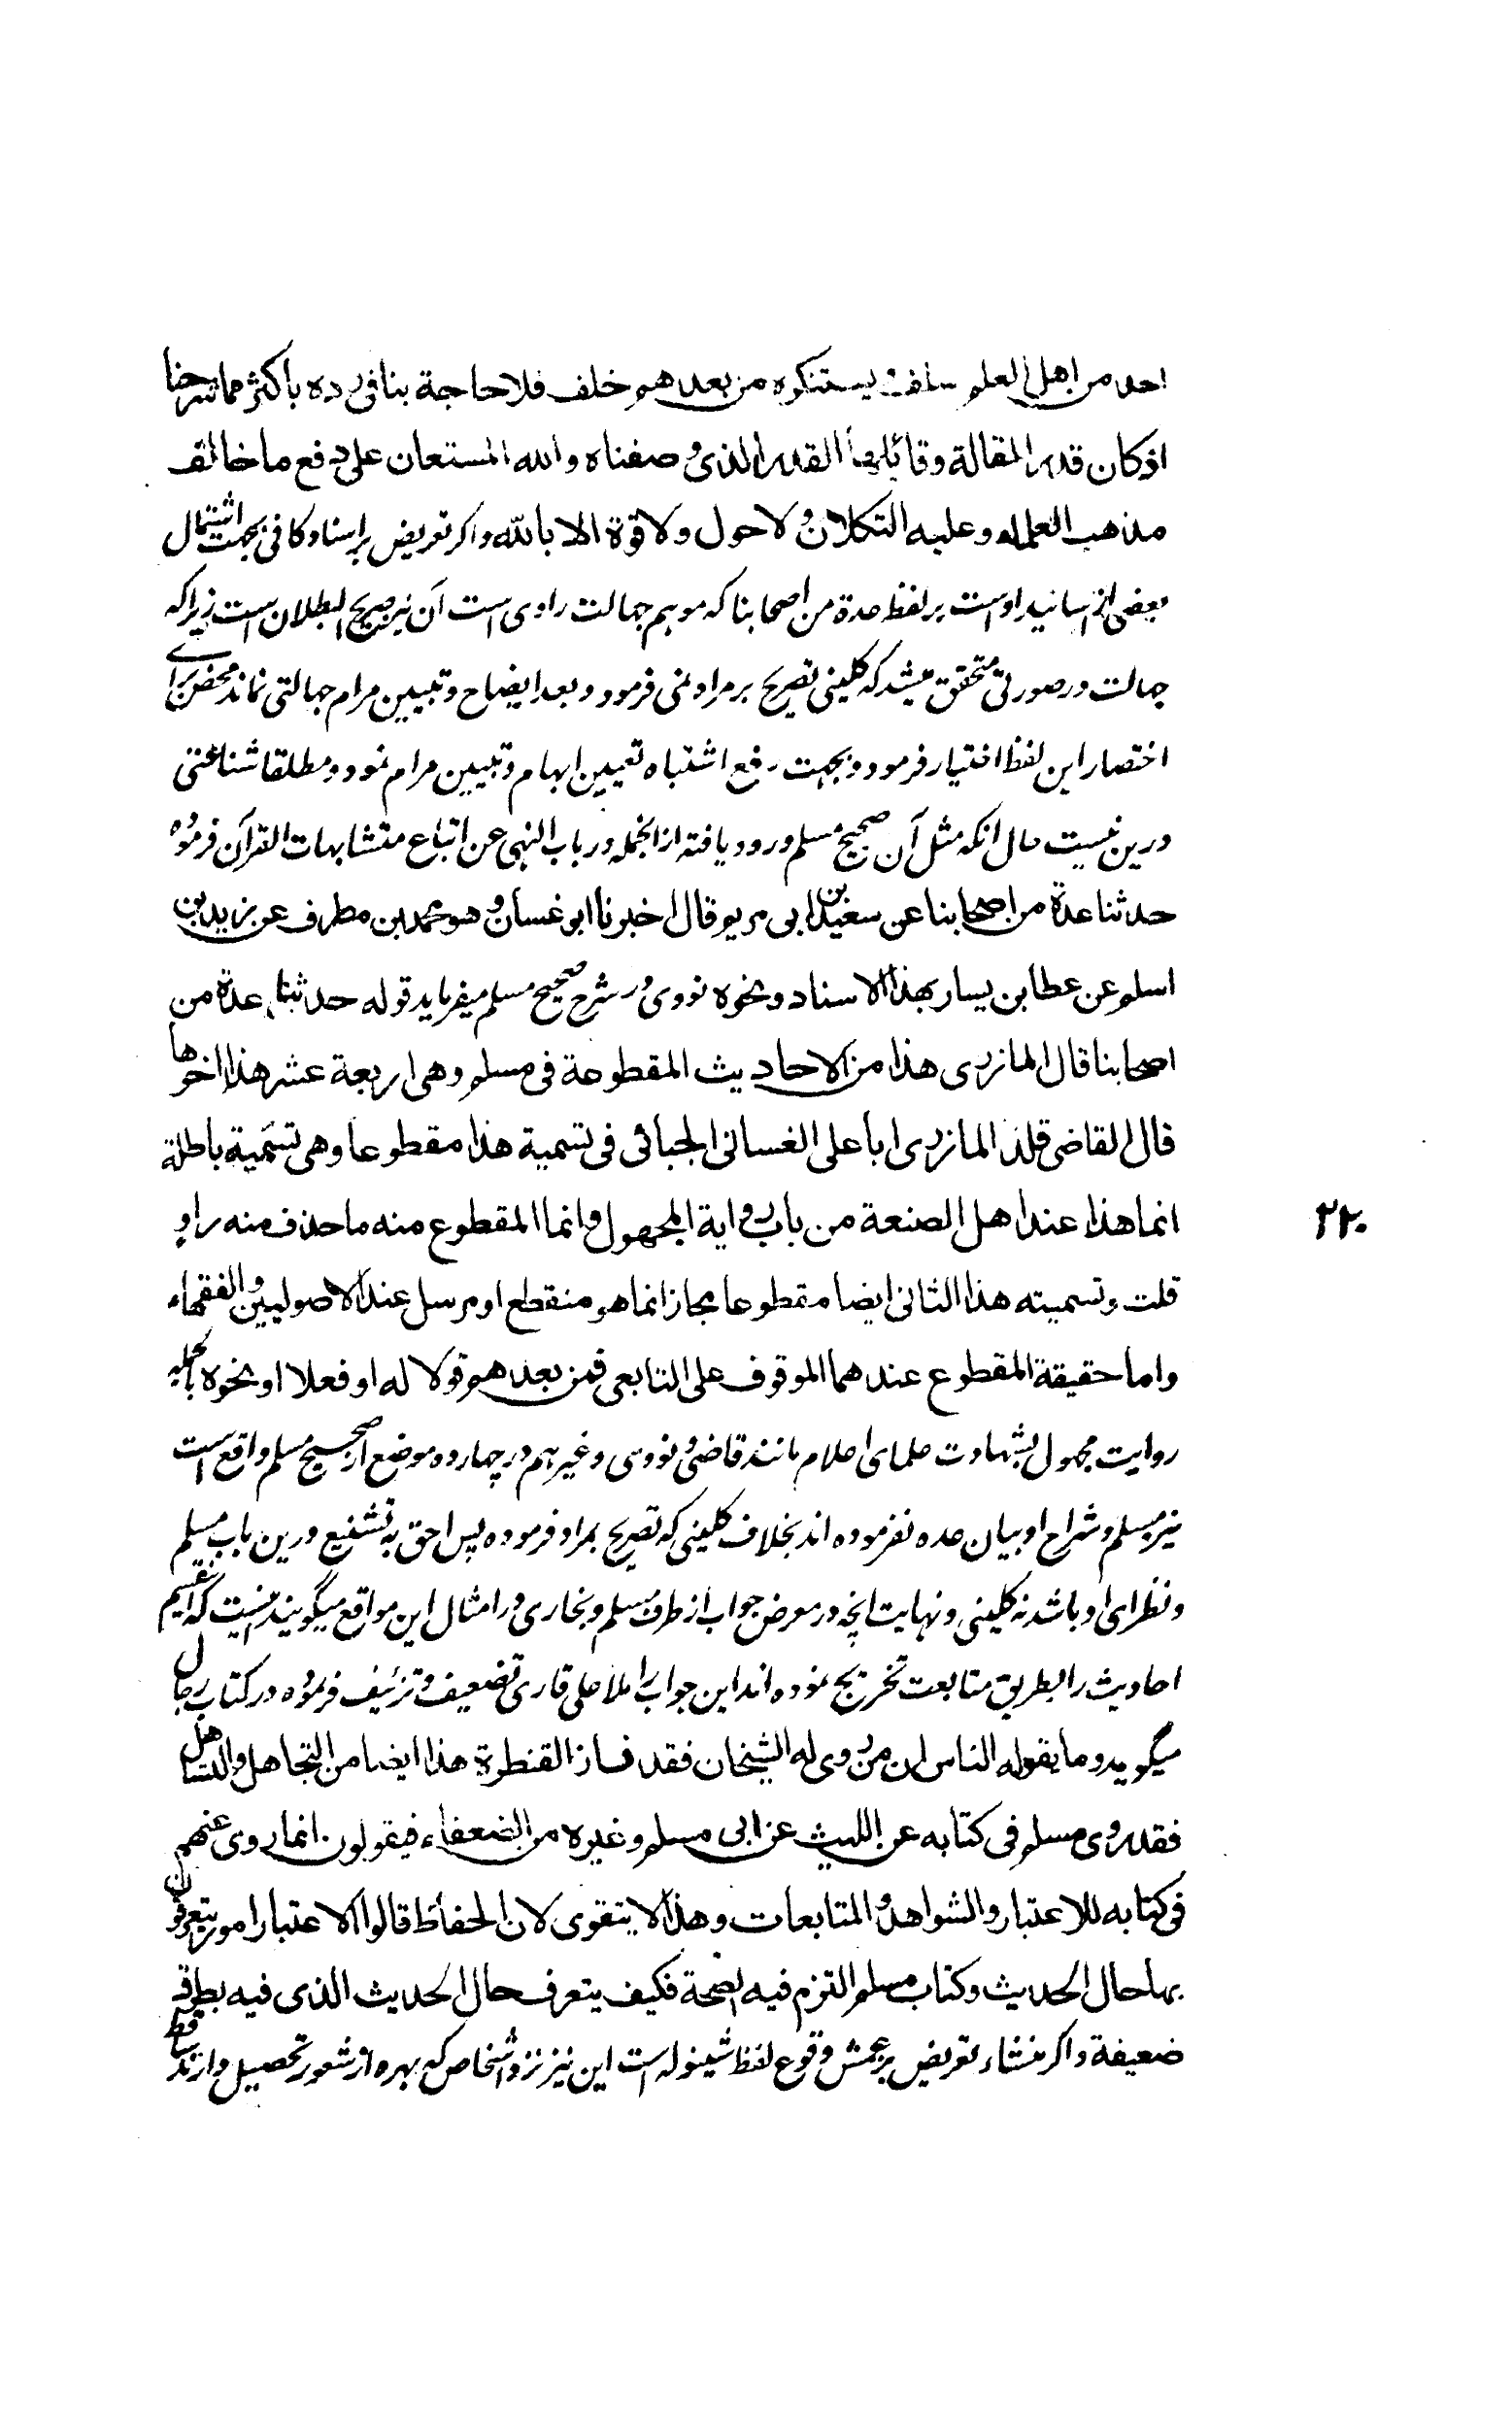 احد من اهل العلم سلف يستنكره من بعدهم خلف فلا حاجة بنا فى رده باكثر مما شرحنا
اذ كان قدر المقالة وقائلها القدر الذى وصفناه والله المستعان على دفع ما خالف
مذهب العلماء وعليه التكلان ولا حول ولا قوة الا بالله واكر تعريض بر اسناد كافى بجهت اشتمال
بعض از اسانيد اوست بر لفظ عدة من اصحابنا كه موهم جهالت راوى است آن نيز صريح البطلان است زيرا كه
جهالت در صورتى متحقق ميشد كه كلينى تصريح بر مراد نمى فرمود و بعد ايضاح و تبيين مرام جهالتى نماند محض براے
اختصار اين لفظ اختيار فرمود و بجهت رفع اشتباه تعيين ابهام و تبيين مرام نمود و مطلقا شناعتى
درين نيست حال انكه مثل آن صحيح مسلم ورود يافته از انجمله در باب النهى عن اتباع متشابهات القرآن فرموده
حدثنا عدة من اصحابنا عن سعيد بن ابى مريم قال اخبرنا ابو غسان وهو محمد بن مطرف عن زيد بن
اسلم عن عطا بن يسار بهذا الاسناد ونحوه نووى در شرح صحيح مسلم ميفرمايد قوله حدثنا عدة من
اصحابنا قال المازرى هذا من الاحاديث المقطوعة فى مسلم وهى اربعة عشر هذا اخرها
قال القاضى قلد المازرى ابا على الغسانى الجبائى فى تسمية هذا مقطوعا وهى تسمية باطلة
انما هذا عند اهل الصنعة من باب رواية المجهول وانما المقطوع منه ما حذف منه راو
٢٢٠
قلت وتسميته هذا الثانى ايضا مقطوعا مجاز انما هو منقطع او مرسل عند الاصوليين والفقهاء
واما حقيقة المقطوع عندهما الموقوف على التابعى فمن بعدهم قولا له او فعلا او نحوه بالجمله
روايت مجهول بشهادت علماى اعلام مانند قاضى و نووى و غيرهم در چهارده موضع از صحيح مسلم واقع است
نيز مسلم و شراح او بيان عده نفرموده اند بخلاف كلينى كه تصريح بمراد فرموده پس احق به تشنيع درين باب مسلم
و نظراى او باشد نه كلينى و نهايت انچه در معرض جواب از طرف مسلم و بخارى در امثال اين مواقع ميگويند اينست كه تقسيم
احاديث را بطريق متابعت تخريج نموده اند اين جواب را ملا على قارى تضعيف و تزئيف فرموده در كتاب رجال
ميگويد وما يقوله الناس ان من روى له الشيخان فقد جاز القنطرة هذا ايضا من التجاهل والتساهل
فقد روى مسلم فى كتابه عن الليث عن ابى مسلم وغيره من الضعفاء فيقولون انما روى عنهم
فى كتابه للاعتبار والشواهد والمتابعات وهذا لا يتقوى لان الحفاظ قالوا الاعتبار امور يتعرفون
بها حال الحديث وكتاب مسلم التزم فيه الصحة فكيف يتعرف حال الحديث الذى فيه بطرق
ضعيفة واكر منشاء تعريض وقوع لفظ است اين نيز نزد اشخاص كه بهره از شعور تحصيل دارند ساقط